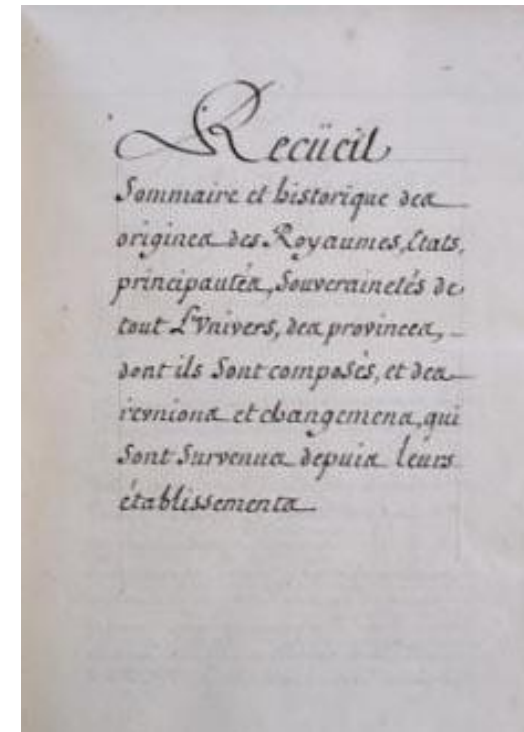 Recüeil
Sommaire et historique des
origines des Royaumes, Etats,
principautés, Souverainetés de
tout L'Vnivers, des provinces,
dont ils Sont composés, et des
revnions et changemens, qui
Sont Survenus depuis leurs
établissements